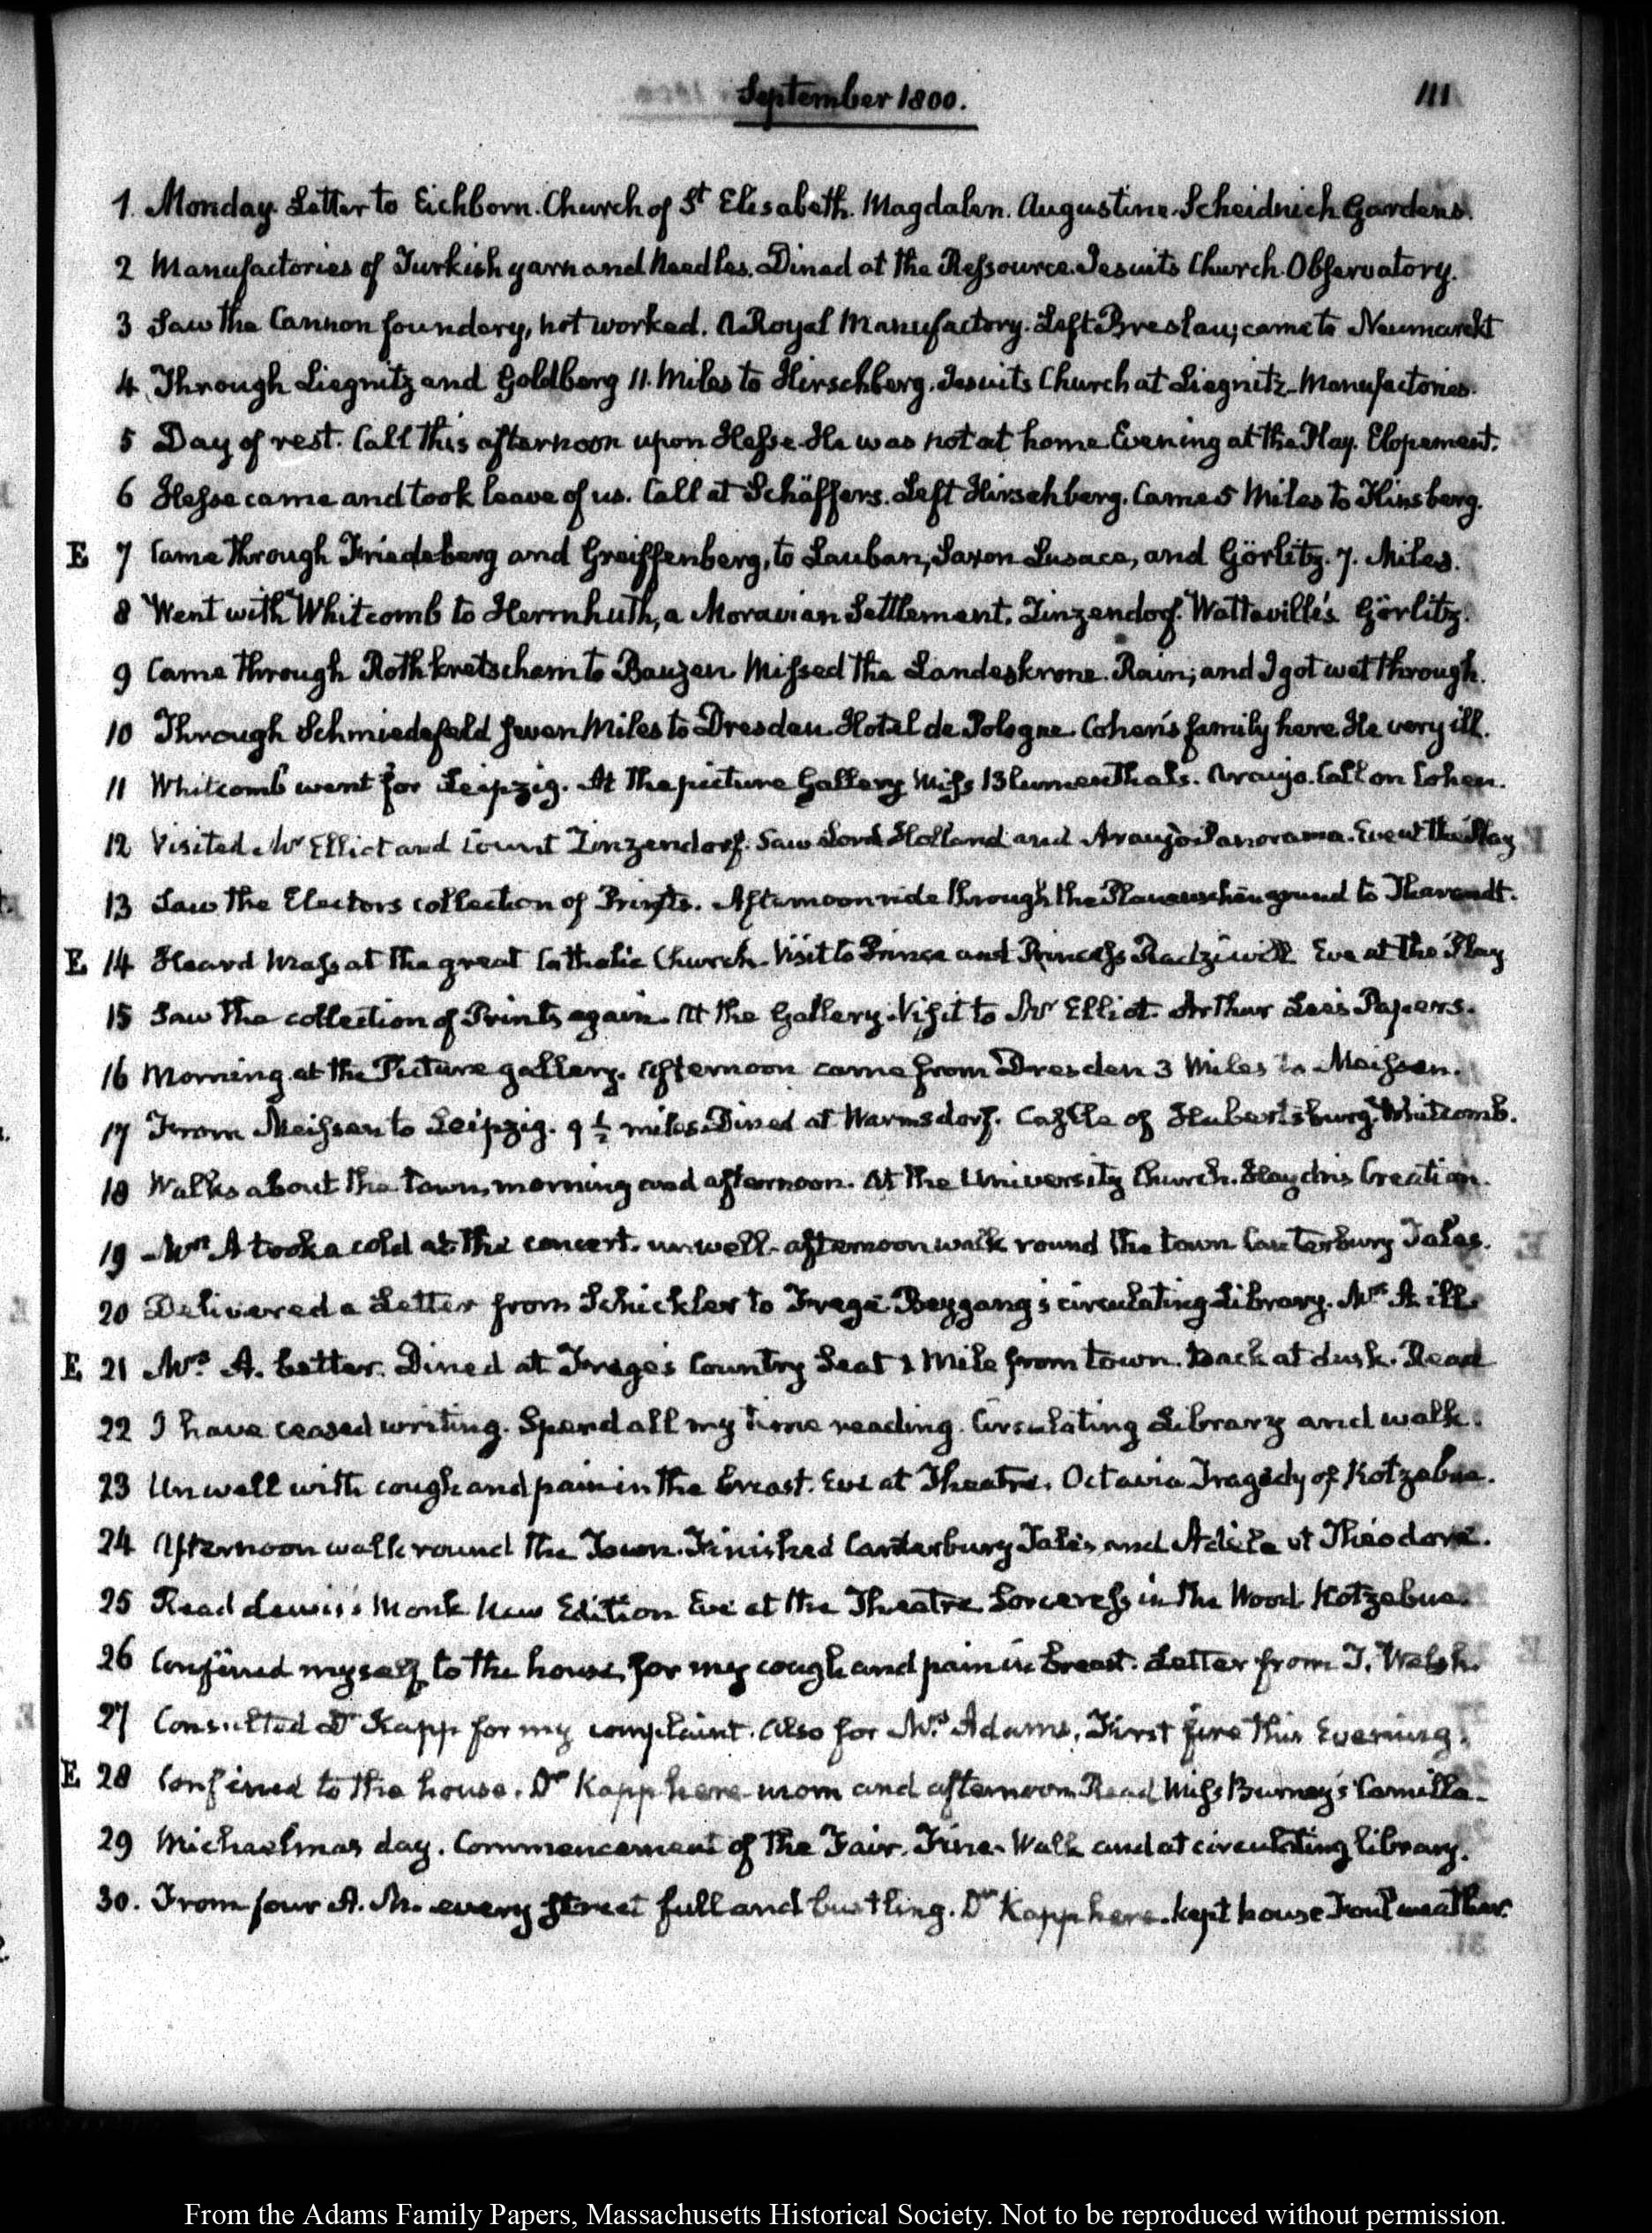 September 1800.
111
1. Monday. Letter to Eichborn. Church of St Elisabeth. Magdalen. Augustine. Scheidnich Gardens.
2 Manufactories of Turkish yarn and Needles. Dined at the Ressource. Jesuits Church. Observatory.
3 Saw the Cannon foundery, not worked. A Royal Manufactory. Left Breslau; came to Neumarckt
4 Through Liegnitz and Goldberg 11. Miles to Hirschberg. Jesuits Church at Liegnitz. Manufactories.
5 Day of rest. Call this afternoon upon Hesse. He was not at home. Evening at the Play. Elopement.
6 Hesse came and took leave of us. Call at Schäffers. Left Hirschberg. Came 5 Miles to Flinsberg.
E 7 Came through Friedeberg and Greiffenberg, to Lauban, Saxon Lusace, and Görlitz. 7. Miles.
8 Went with Whitcomb to Herrnhuth, a Moravian Settlement. Zinzendorf. Watteville's. Görlitz.
9 Came through Rothkretscham to Bauzen. Missed the Landeskrone. Rain; and I got wet through.
10 Through Schmiedefeld seven Miles to Dresden. Hotel de Pologne. Cohen's family here. He very ill.
11 Whitcomb went for Leipzig. At the picture Gallery Miss Blumenthals. Araujo. Call on Cohen.
12 Visited Mr Elliot and Count Zinzendorf. Saw Lord Holland and Araujo. Panorama. Eve at the Play
13 Saw the Electors collection of Prints. Afternoon ride through the Plauenschen grund to Tharandt.
E 14 Heard Mass at the great Catholic Church. Visit to Prince and Princess Radziwill Eve at the Play
15 Saw the collection of Prints again. At the Gallery. Visit to Mr Elliot. Arthur Lee's Papers.
16 Morning at the Picture gallery. Afternoon came from Dresden 3 Miles to Meissen.
17 From Meissen to Leipzig. 9 1/2 miles. Dined at Warmsdorf. Castle of Hubertsburg. Whitcomb.
18 Walks about the town, morning and afternoon. At the University Church. Haydn's Creation.
19 Mrs A took a cold at the concert. unwell. afternoon walk round the town Canterbury Tales.
20 Delivered a Letter from Schickler to Frege. Beygang's circulating Library. Mrs A. ill.
E 21 Mrs A. better. Dined at Frege's Country Seat 1 Mile from town. Back at dusk. Read
22 I have ceased writing. Spend all my time reading. Circulating Library and walk.
23 Unwell with cough and pain in the breast. Eve at Theatre. Octavia Tragedy of Kotzebue.
24 Afternoon walk round the Town. Finished Canterbury Tales, and Adèle et Théodore.
25 Read Lewis's Monk New Edition Eve at the Theatre Sorceress in the Wood. Kotzebue.
26 Confined myself to the house, for my cough and pain in breast. Letter from T. Welsh.
27 Consulted Dr Kapp for my complaint. Also for Mrs Adams. First fire this Evening.
E 28 Confined to the house. Dr Kapp here morn and afternoon. Read Miss Burney's Camilla.
29 Michaelmas day. Commencement of the Fair. Fine. Walk and at circulating library.
30. From four A. M. every street full and bustling. Dr Kapp here. kept house Foul weather.
From the Adams Family Papers, Massachusetts Historical Society. Not to be reproduced without permission.